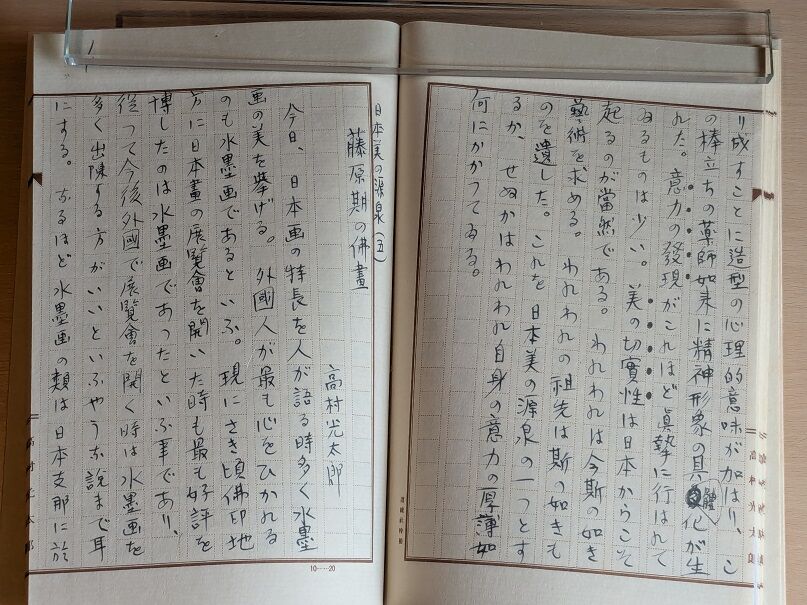 り成すことに造型の心理的意味が加はり、こ
の棒立ちの薬師如来に精神形象の具體化が生
れた。意力の發現がこれほど眞摯に行はれて
ゐるものは少い。美の切實性は日本からこそ
起るのが當然である。われわれは今斯の如き
藝術を求める。われわれの祖先は斯の如きも
のを遺した。これを日本美の源泉の一つとす
るか、せぬかはわれわれ自身の意力の厚薄如
何にかかつてゐる。
日本美の源泉(五)
藤原期の佛畫
高村光太郎
今日、日本画の特長を人が語る時多く水墨
画の美を擧げる。外國人が最も心をひかれる
のも水墨画であるといふ。現にさき頃佛印地
方に日本畫の展覧會を開いた時も最も好評を
博したのは水墨画であつたといふ事であり、
従つて今後外國で展覧會を開く時は水墨画を
多く出陳する方がいいといふやうな説まで耳
にする。なるほど水墨画の類は日本支那に於
10……20